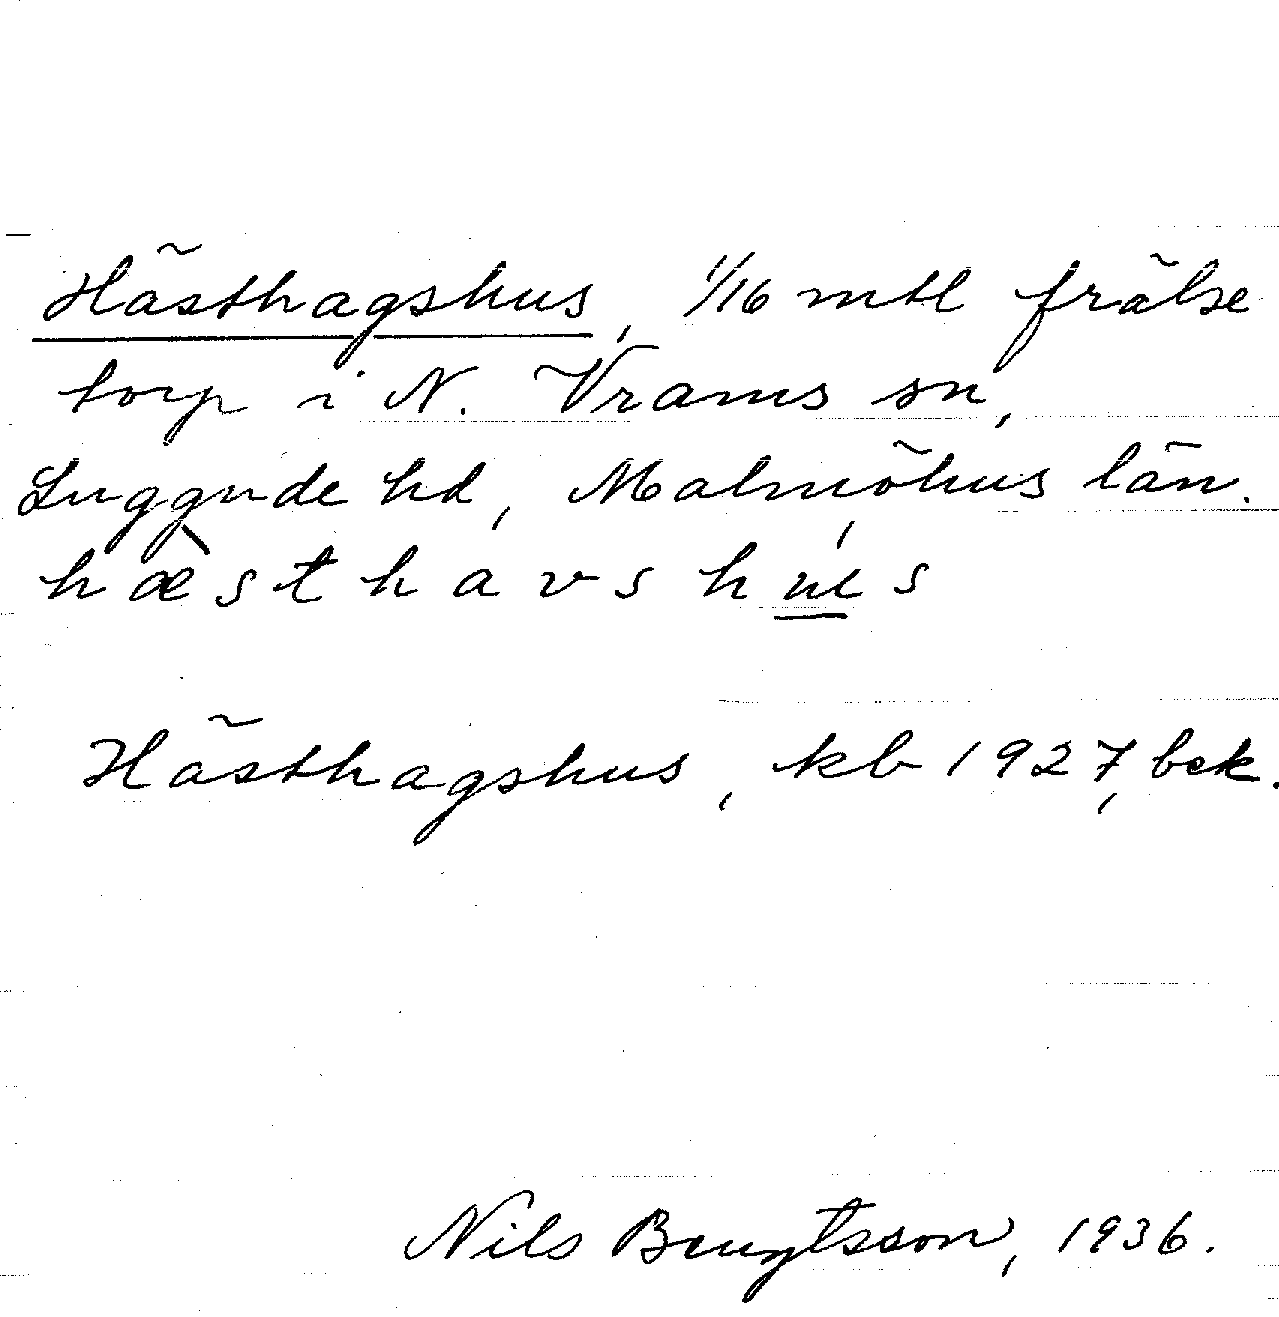 Hästhagshus, 1/16 mtl frälse
torp i N. Vrams sn,
Luggude hd, Malmöhus län.
hæ̀sthavshú̲s
Hästhagshus, kb 1927, bek.
Nils Bengtsson, 1936.